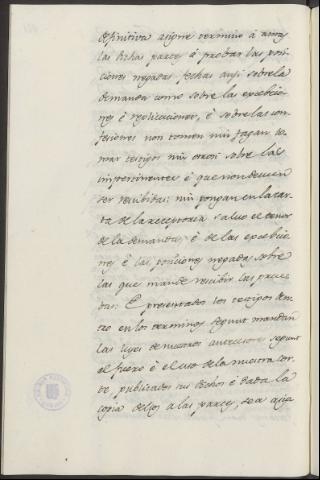 definitiva asigne termino á amas
las dichas partes á probar las posi
ciones negadas, fechas ansi sobre la
demanda como sobre las excebcio
nes é replicaciones, é sobre las con
fesiones non tomen nin fagan to
mar testigos nin otrosi sobre las
impertinentes é que non deuen
ser rescibidas; nin pongan en la car
ta de la receptoria saluo el tenor
de la demanda, é de las excebcio
nes é las posiciones negadas sobre
las que mande rescibir las prue
bas: E presentados los testigos den
tro en los terminos segunt mandan
las leyes de nuestros antecesores segunt
el fuero é el uso de la nuestra cor
te, publicados sus dichos é dada la
copia dellos a las partes, sea asig